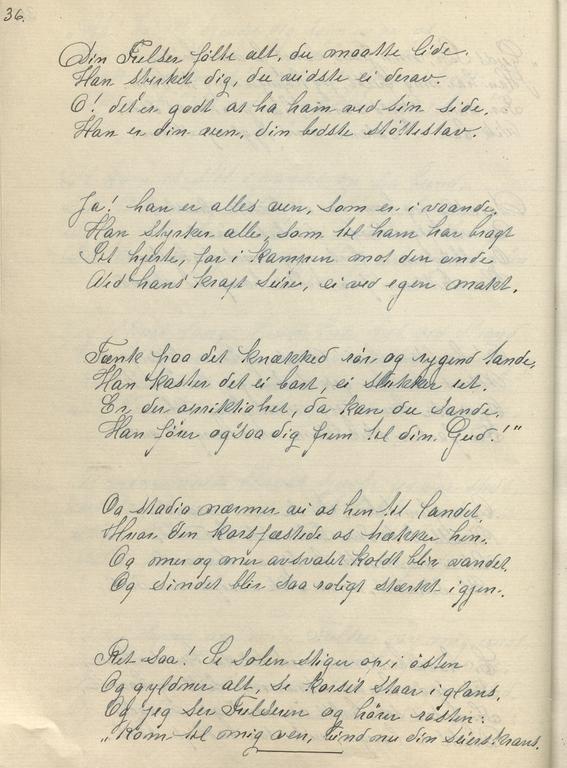 36.
Din Frelser følte alt, du maatte lide.
Han styrket dig, du vidste ei derav.
O! det er godt at ha ham ved sin side.
Han er din ven, din bedste støttestav.
Ja! han er alles ven, som er i vaande.
Han styrker alle, som til ham har bragt
Sit hjerte, for i kampen mot den onde
Ved hans kraft seire, ei ved egen makt.
Tænk paa det knækked rør og rygend tande,
Han kaster det ei bort, ei slukker ut.
Er du opriktighet, da kan du sande,
Han fører ogsaa dig frem til din Gud.!"
Og stadig nærmer vi os hen til landet,
Hvor den korsfæstede os trækker hen.
Og mer og mer avsvalet koldt blir vandet.
Og sindet blir saa roligt stærkt igjen.
Ret saa! Se solen stiger op i østen
Og gyldner alt, se korset staar i glans,
Og jeg ser Frelseren og hører røsten:
"Kom til mig ven, bind nu din seierskrans.